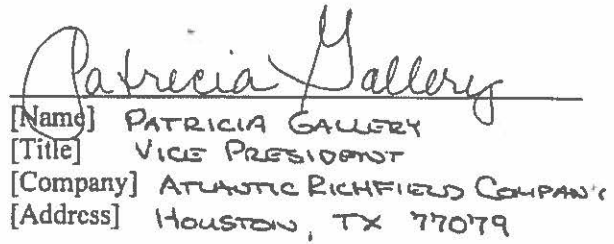 Patricia Gallery
[Name] PATRICIA GALLERY
[Title] VICE PRESIDENT
[Company] ATLANTIC RICHFIELD COMPANY
[Address] HOUSTON, TX 77079